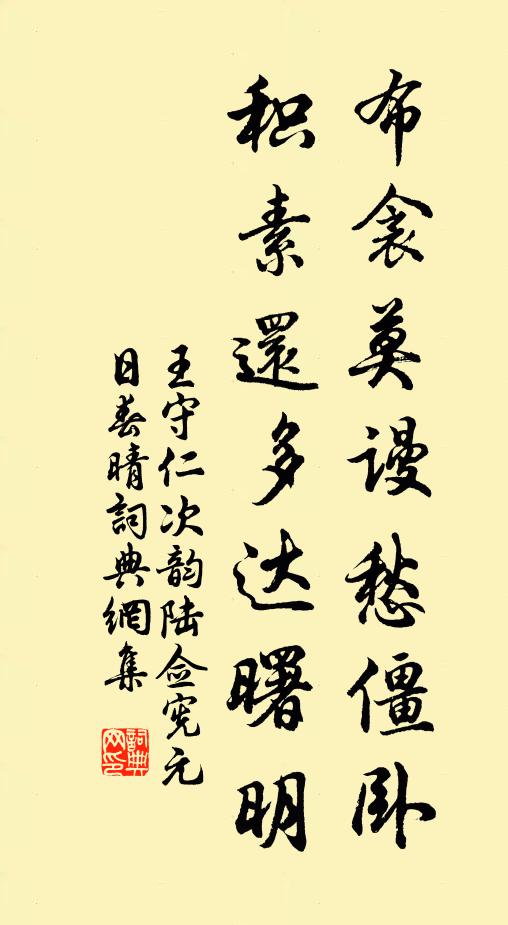 布衾莫谩愁僵卧
积素還多达曙明
王守仁次韵陆佥宪元
日春晴詞典網集
詞典
网印